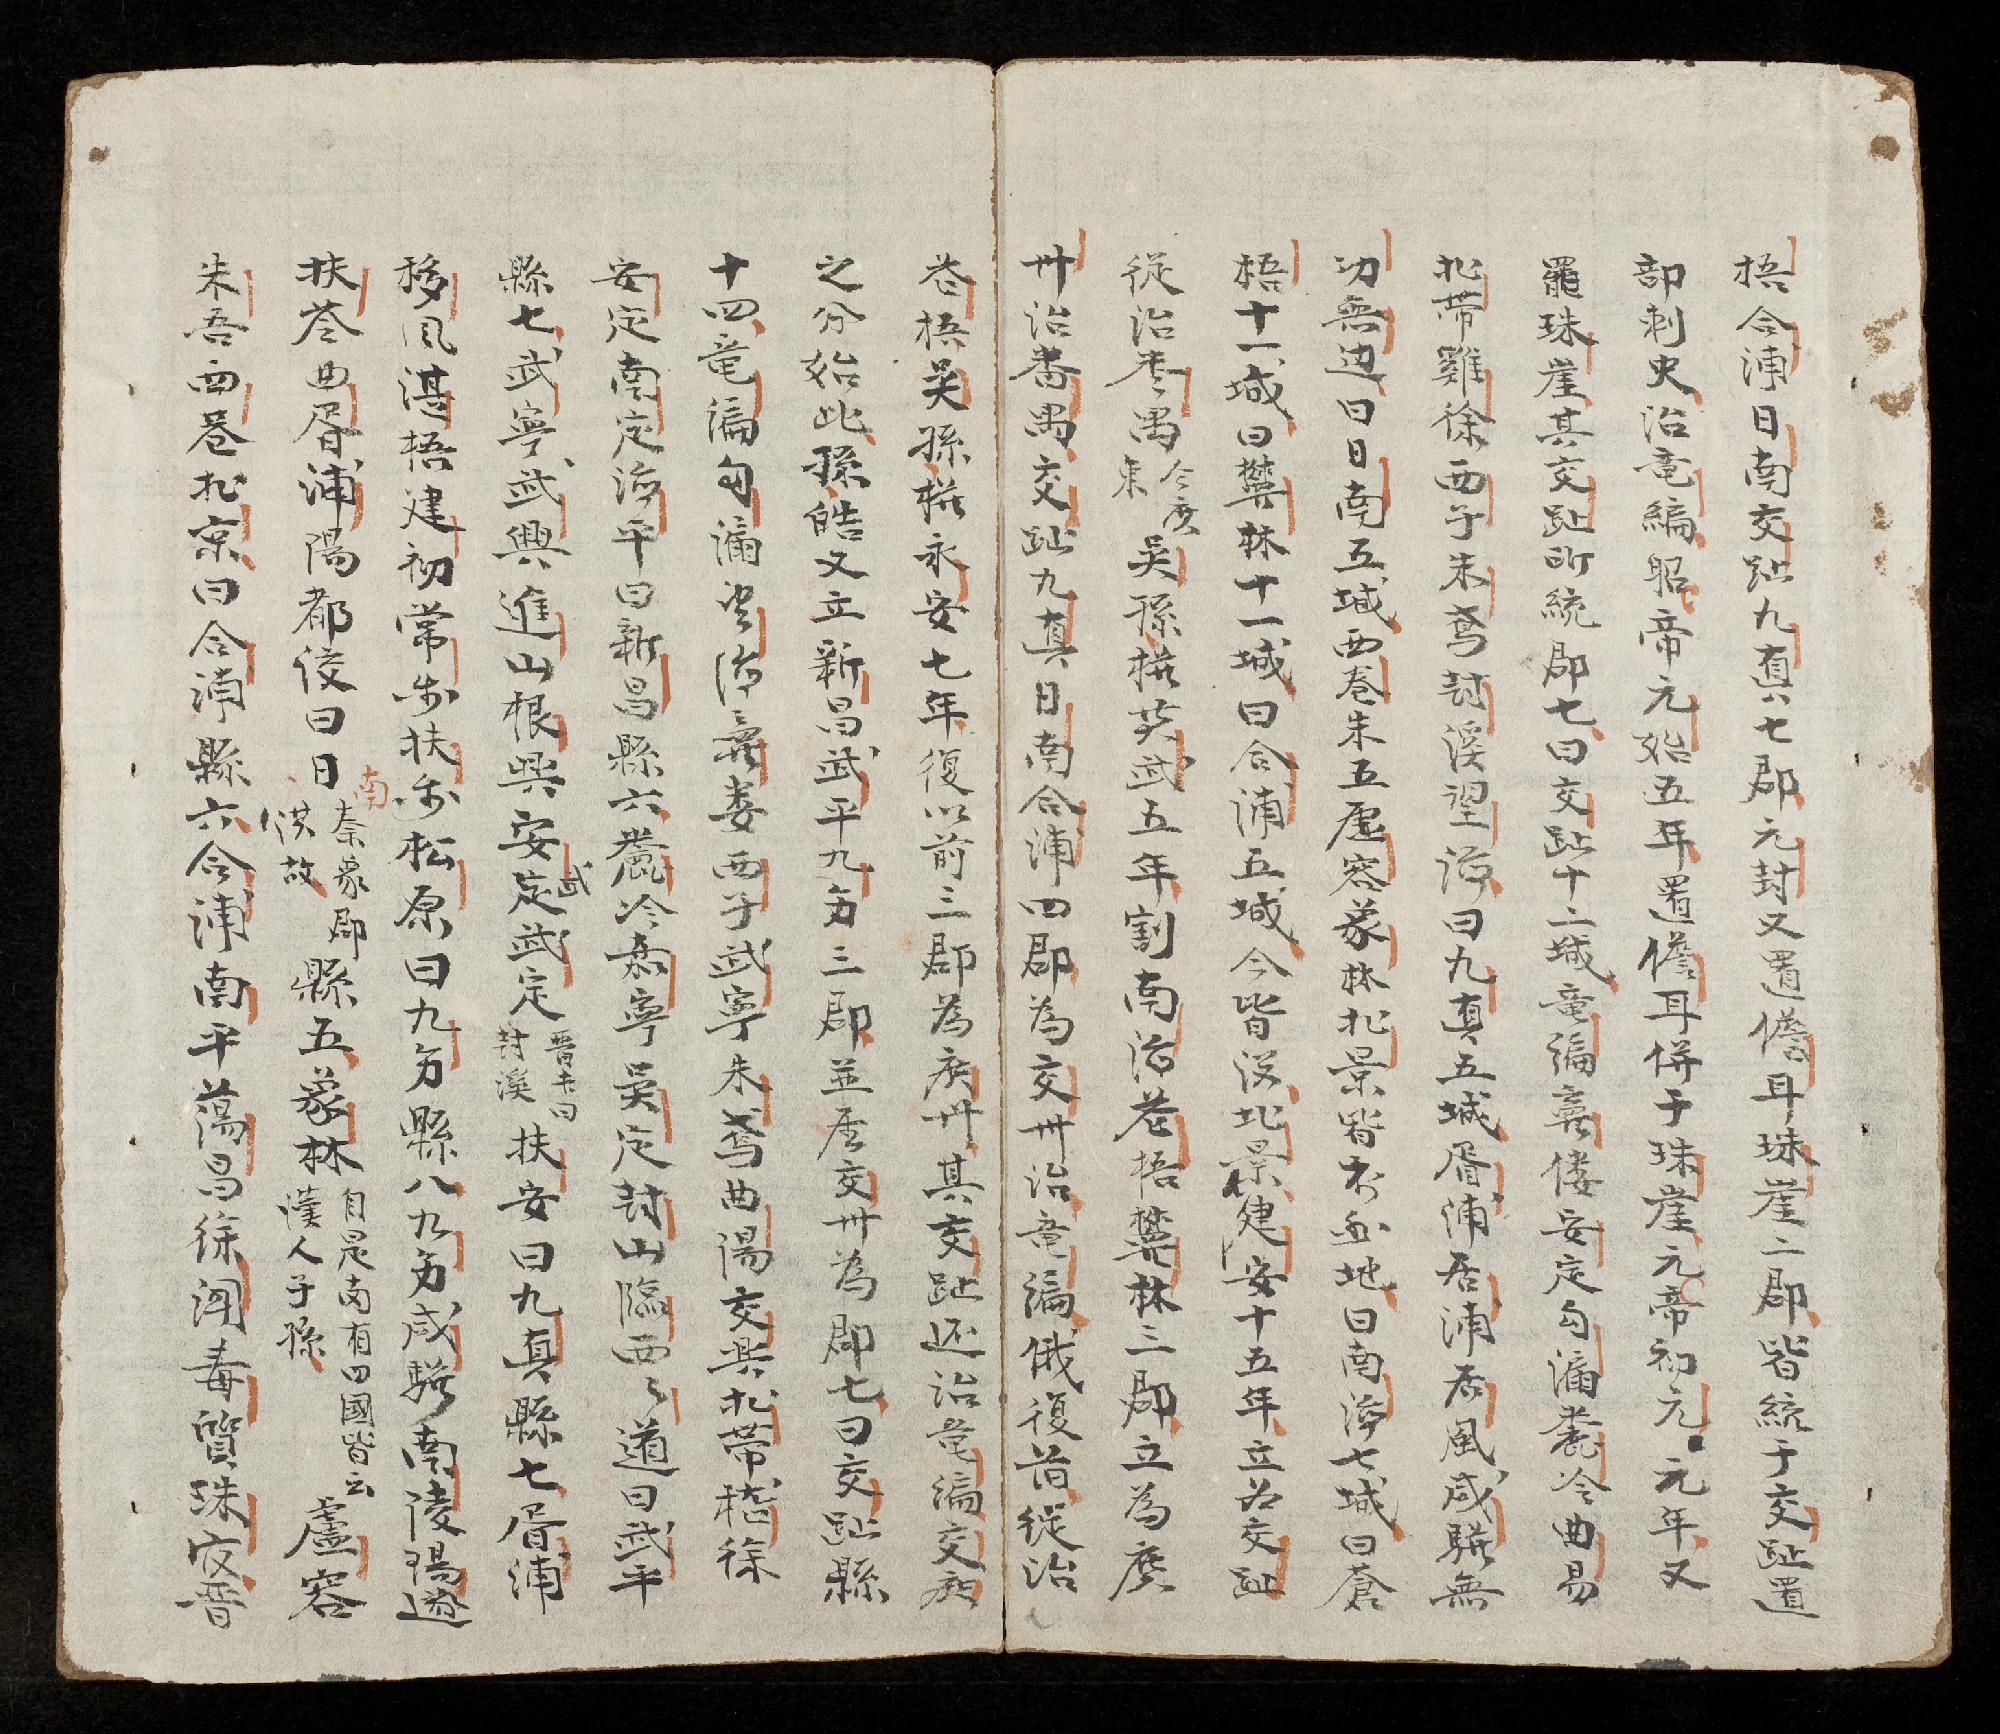 梧合浦日南交趾九真七郡元封又置儋耳珠崖二郡皆統于交趾置
部刺史治竜編昭帝元始五年置儋耳併于珠崖元帝初元元年又
罷珠崖其交趾所統郡七曰交趾十二城竜編羸𨻻安定勾漏麊冷曲昜
北帶雞徐西于朱鸢封溪望海曰九真五城胥浦居浦居風咸驩無
功無边曰日南五城西卷朱五盧容象林北景皆于此地曰南海七城曰蒼
梧十一城曰欝林十一城曰合浦五城今皆没北景建安十五年立为交趾
從治番禺今廣東吳孫権英武五年割南海蒼梧欝林三郡立為廣
卅治番禺交趾九真日南合浦四郡為交卅治竜編俄復首從治
蒼梧吳孫権永安七年復以前三郡為廣卅其交趾还治竜編交廣
之分始此孫皓又立新昌武平九为三郡並居交卅為郡七曰交趾縣
十四竜編勾漏望海羸婁西于武寧朱鸢曲陽交興北帶稽徐
安定南定海平曰新昌縣六麊冷嘉寧吳定封山臨西西道曰武平
縣七武寧武興進山根興安定武武定晋書曰封溪扶安曰九真縣七胥浦
移风湛梧建初常步扶步松原曰九为縣八九为咸驩南陵陽遂
扶苓曲胥浦陽都佼曰日南秦象郡洪故縣五象林自是南有四國皆云漢人子孫盧容
朱吾西卷北京曰合浦縣六合浦南平蕩昌徐闻毒質珠官晋